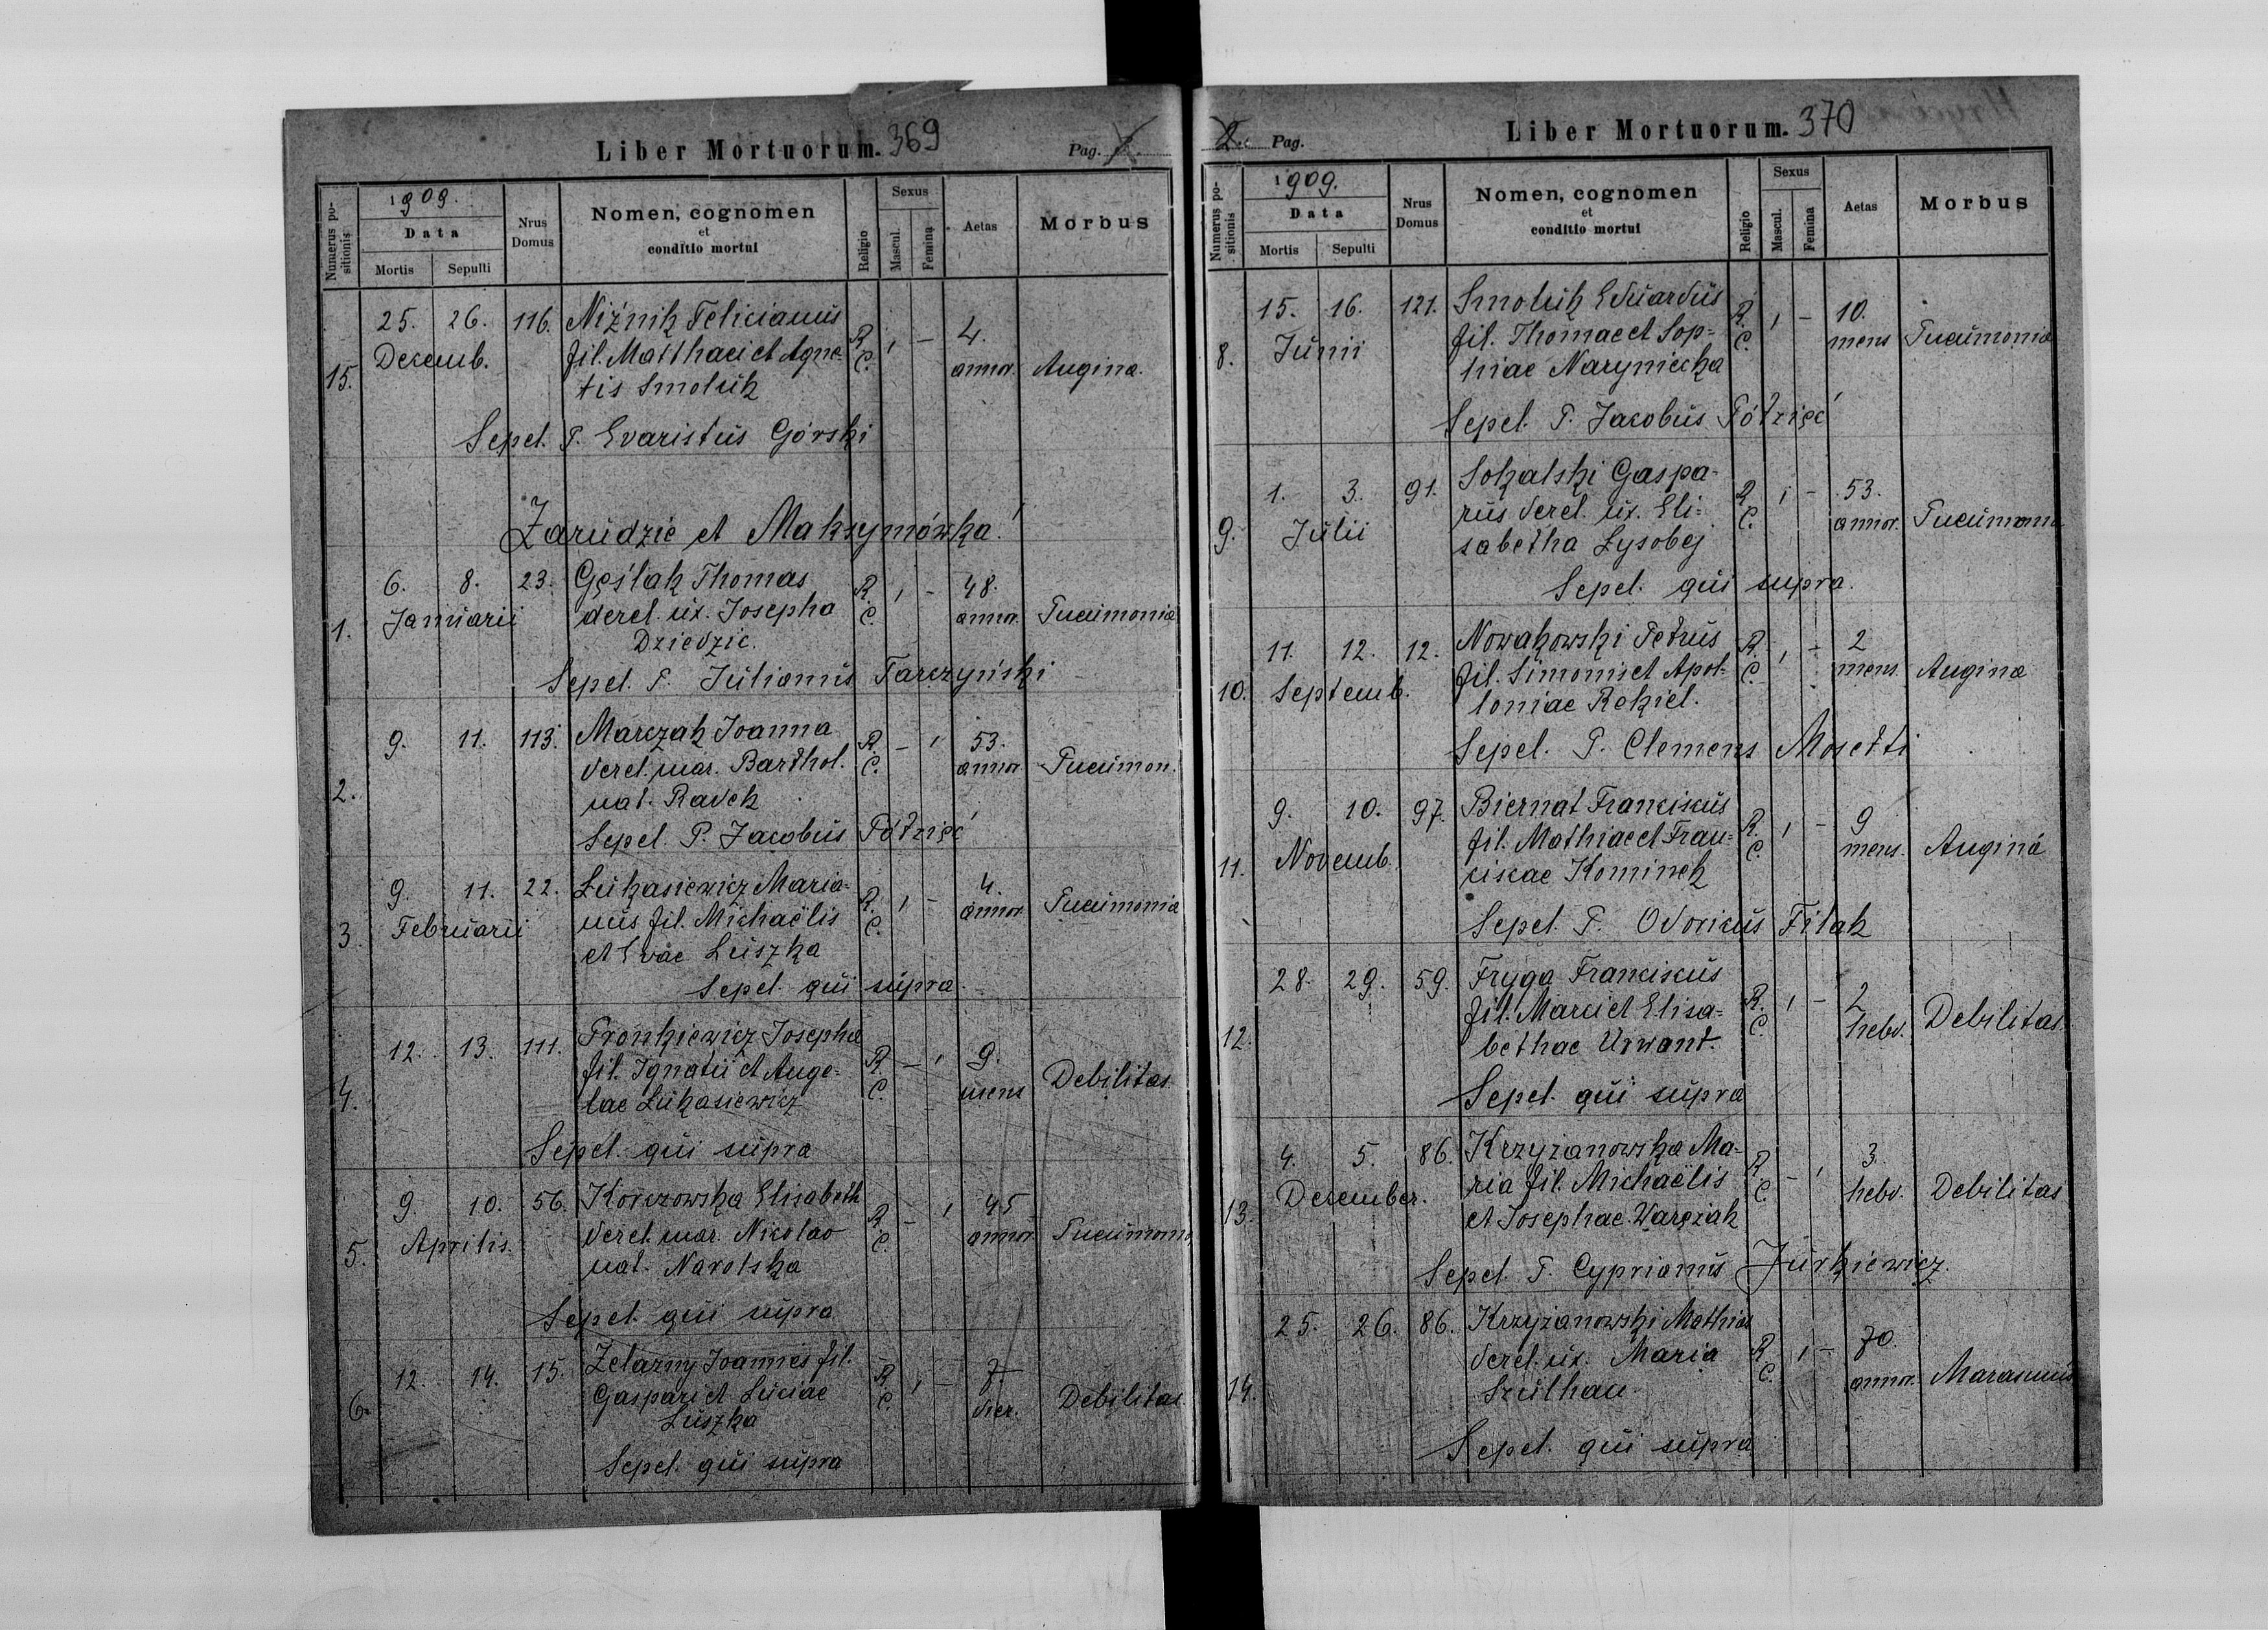 Liber Mortuorum. 369
Pag. 1.
Numerus positionis
1909.
Data
Mortis Sepulti
Nrus Domus
Nomen, cognomen
et
conditio mortui
Religio
Sexus
Mascul. Femina
Aetas
Morbus
15. 25. 26. 116. Niźnik Felicianus R. C. 1 – 4. annor. Angina.
Decemb. fil. Matthaei et Agne-
tis Smoluk
Sepel. P. Evaristus Górski
Zarudzie et Maksymówka!
1. 6. 8. 23. Gęślak Thomas R. C. 1 – 48. annor. Pneumonia
Januarii derel. ux. Josepha
Dziedzic.
Sepel. P. Julianus Tarczyński
2. 9. 11. 113. Marczak Joanna R. C. – 1 53. annor Pneumon.
derel. mar. Barthol.
nat. Radek
Sepel. P. Jacobus Półzięć
3. 9. 11. 22. Łukasiewicz Maria- R. C. 1 – 4. annor Pneumonia
Februarii nus fil. Michaëlis
et Evae Luszka
Sepel. qui supra.
4. 12. 13. 111. Fronkiewicz Josepha R. C. – 1 9. mens Debilitas
fil. Ignatii et Ange-
lae Łukasiewicz
Sepel. qui supra
5. 9. 10. 56. Korczowska Elisabeth R. C. – 1 45 annor Pneumoni
Aprilis. derel. mar. Nicolao
nat. Narolska
Sepel. qui supra
6. 12. 14. 15. Żelazny Joannes fil. R. C. 1 – 7 dier. Debilitas
Gaspari et Luciae
Luszka
Sepel. qui supra
2. Pag.
Liber Mortuorum. 370
Numerus positionis
1909.
Data
Mortis Sepulti
Nrus Domus
Nomen, cognomen
et
conditio mortui
Religio
Sexus
Mascul. Femina
Aetas
Morbus
8. 15. 16. 121. Smoluk Eduardus R. C. 1 – 10. mens Pneumonia
Junii fil. Thomae et Sop-
hiae Naryniecka
Sepel. P. Jacobus Półzięć
9. 1. 3. 91. Sokalski Gaspa- R. C. 1 – 53. annor. Pneumonia
Julii rus derel. ux. Eli-
sabetha Łysobej
Sepel. qui supra.
10. 11. 12. 12. Nowakowski Petrus R. C. 1 – 2 mens. Angina
Septemb. fil. Simonis et Apol-
loniae Rekiel.
Sepel. P. Clemens Mosetti
11. 9. 10. 97. Biernat Franciscus R. C. 1 – 9 mens. Angina
Novemb. fil. Mathiae et Fran-
ciscae Kominek
Sepel. P. Odoricus Filak
12. 28. 29. 59. Fryga Franciscus R. C. 1 – 2 hebd. Debilitas
fil. Marci et Elisa-
bethae Urwant.
Sepel. qui supra
13. 4. 5. 86. Krzyżanowska Ma- R. C. – 1 3. hebd. Debilitas
December. ria fil. Michaëlis
et Josephae Warcziak
Sepel. P. Cyprianus Jurkiewicz.
14. 25. 26. 86. Krzyżanowski Mathias R. C. 1 – 70. annor. Marasmus
derel. ux. Maria
Szulhan
Sepel. qui supra